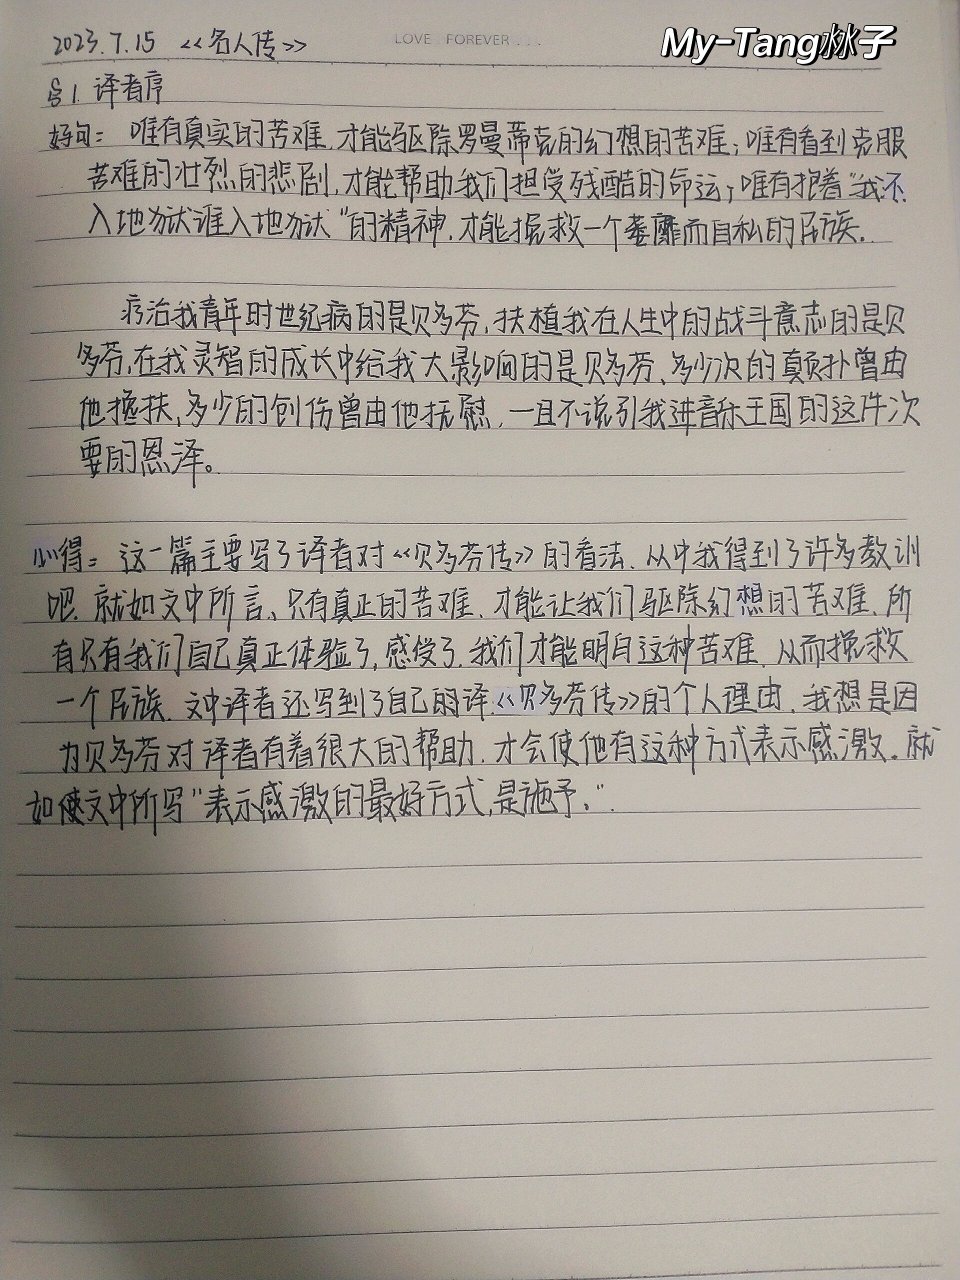 My-Tang沝子
LOVE . FOREVER . . .
2023.7.15 <<名人传>>
§1. 译者序
好句: 唯有真实的苦难,才能驱除罗曼蒂克的幻想的苦难;唯有看到克服
苦难的壮烈的悲剧,才能帮助我们担受残酷的命运;唯有抱着“我不
入地狱谁入地狱”的精神,才能挽救一个萎靡而自私的民族.
疗治我青年时世纪病的是贝多芬,扶植我在人生中的战斗意志的是贝
多芬,在我灵智的成长中给我大影响的是贝多芬、多少次的颠扑曾由
他搀扶,多少的创伤曾由他抚慰,一且不说引我进音乐王国的这件次
要的恩泽。
心得: 这一篇主要写了译者对<<贝多芬传>>的看法、从中我得到了许多教训
吧.就如文中所言、只有真正的苦难、才能让我们驱除幻想的苦难、所
有只有我们自己真正体验了,感受了.我们才能明白这种苦难、从而挽救
一个民族.文中译者还写到了自己的译<<贝多芬传>>的个人理由、我想是因
为贝多芬对译者有着很大的帮助、才会使他有这种方式表示感激。就
如使文中所写“表示感激的最好方式,是施予、”.